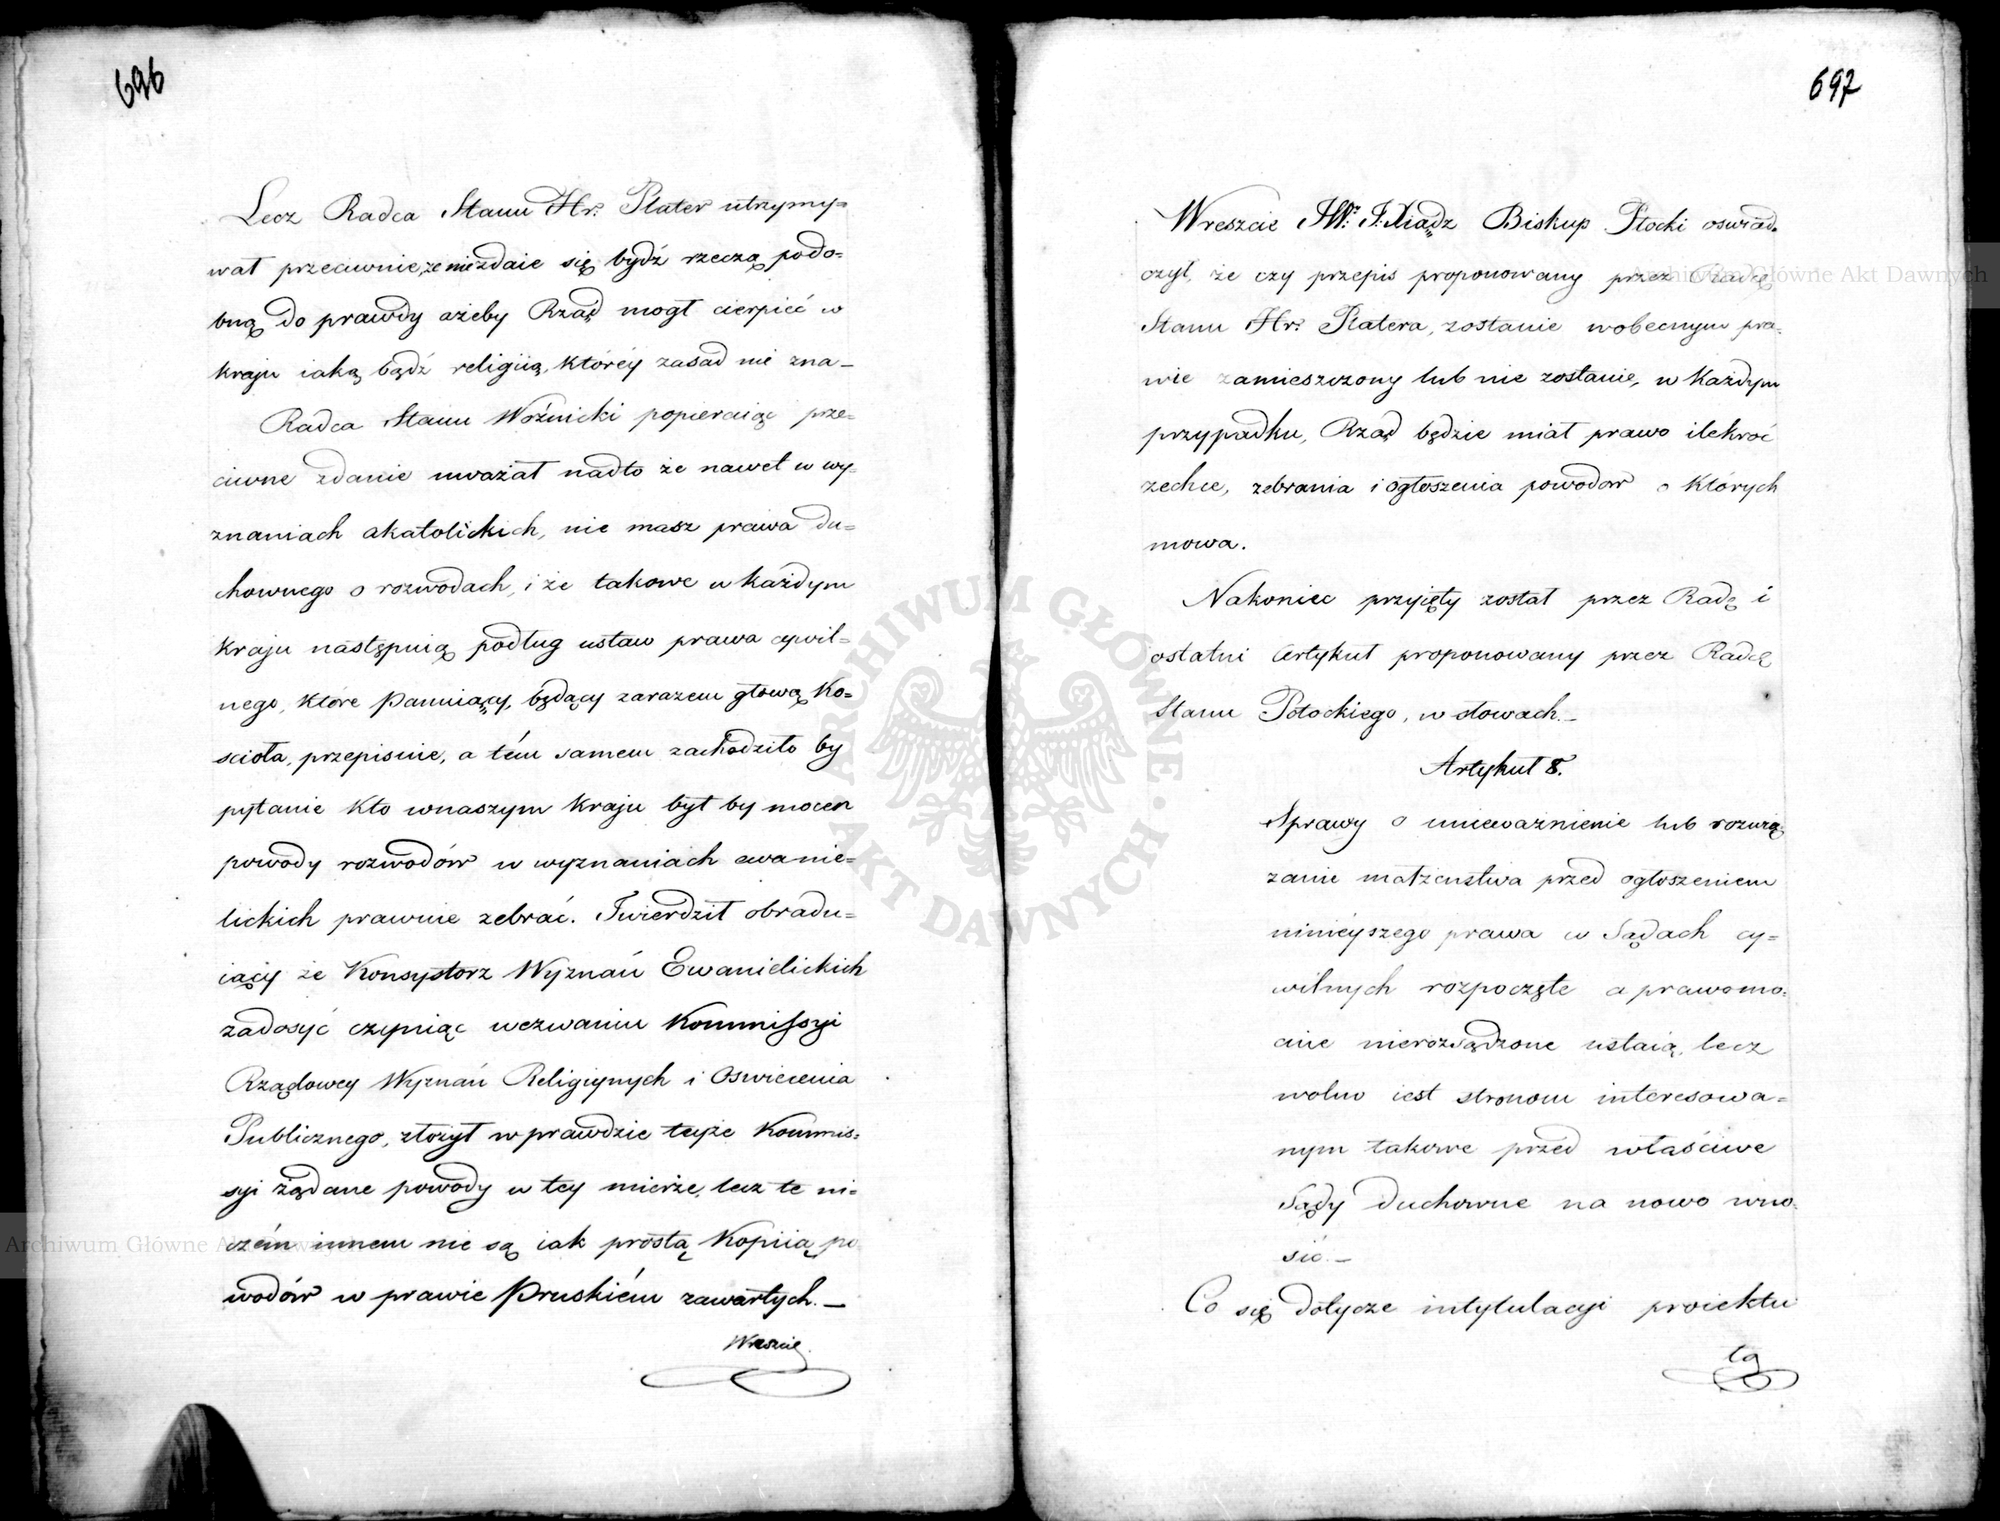 696
Lecz Radca Stanu Hr: Plater utrzymy=
wał przeciwnie, że niezdaie się bydź rzeczą podo=
bną do prawdy ażeby Rząd mogł cierpieć w
kraju iaką bądź religiią, któréy zasad nie zna_
Radca Stanu Woźnicki popieraiąc prze=
ciwne zdanie uważał nadto że nawet w wy=
znaniach akatolickich, nie masz prawa du=
chownego o rozwodach, i że takowe w każdym
kraju następuią podług ustaw prawa cywil=
nego, które Panuiący, będący zarazem głową Ko=
scioła, przepisuie, a tém samem zachodziło by
pytanie kto wnaszym kraju był by mocen
powody rozwodów w wyznaniach ewanie=
lickich prawnie zebrać. Twierdził obradu=
iący że Konsystorz Wyznań Ewanielickich
zadosyć czyniąc wezwaniu Kommissyi
Rządowey Wyznań Religiynych i Oswiecenia
Publicznego, złożył wprawdzie teyże Kommis=
syi żądane powody w tey mierze, lecz te ni=
czém innem nie są iak prostą Kopiią po
wodów w prawie Pruskiém zawartych._
Wreszcie
697
Wreszcie JW: J: Xiądz Biskup Płocki oswiad=
czył, że czy przepis proponowany przez Radcę
Stanu Hr: Platera, zostanie wobecnym pra=
wie zamieszczony lub nie zostanie, w każdym
przypadku, Rząd będzie miał prawo ilekroć
zechce, zebrania i ogłoszenia powodow o których
mowa.
Nakoniec przyięty został przez Radę i
ostatni Artykuł proponowany przez Radcę
Stanu Potockiego, w słowach._
Artykuł 8.
Sprawy o unieważnienie lub rozwią
zanie małżeństwa przed ogłoszeniem
ninieyszego prawa w Sądach cy=
wilnych rozpoczęte a prawomo=
cnie nierozsądzone ustaią, lecz
wolno iest stronom interesowa=
nym takowe przed właściwe
Sądy duchowne na nowo wno=
sić._
Co się dotycze intytulacyi proiektu
tg
ARCHIWUM GŁÓWNE AKT DAWNYCH
Archiwum Główne Akt Dawnych
Archiwum Główne Akt Dawnych